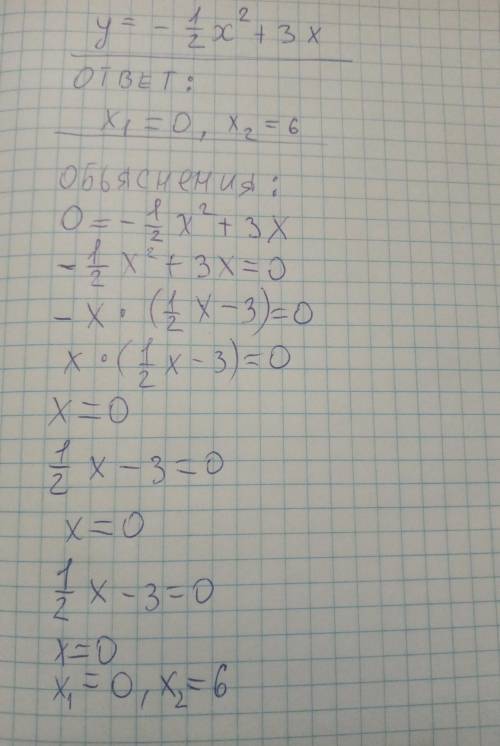 y = - 1/2 x² + 3x
ОТВЕТ:
x₁ = 0, x₂ = 6
ОБЬЯСНЕНИЯ:
0 = - 1/2 x² + 3x
- 1/2 x² + 3x = 0
- x · (1/2 x - 3) = 0
x · (1/2 x - 3) = 0
x = 0
1/2 x - 3 = 0
x = 0
1/2 x - 3 = 0
x = 0
x₁ = 0, x₂ = 6